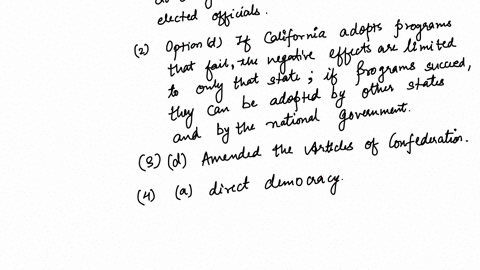 elected officials.
(2) Option(d) If California adopts programs
that fail, the negative effects are limited
to only that state; if programs succeed,
they can be adopted by other states
and by the national government.
(3) (d) Amended the Articles of Confederation.
(4) (a) direct democracy.